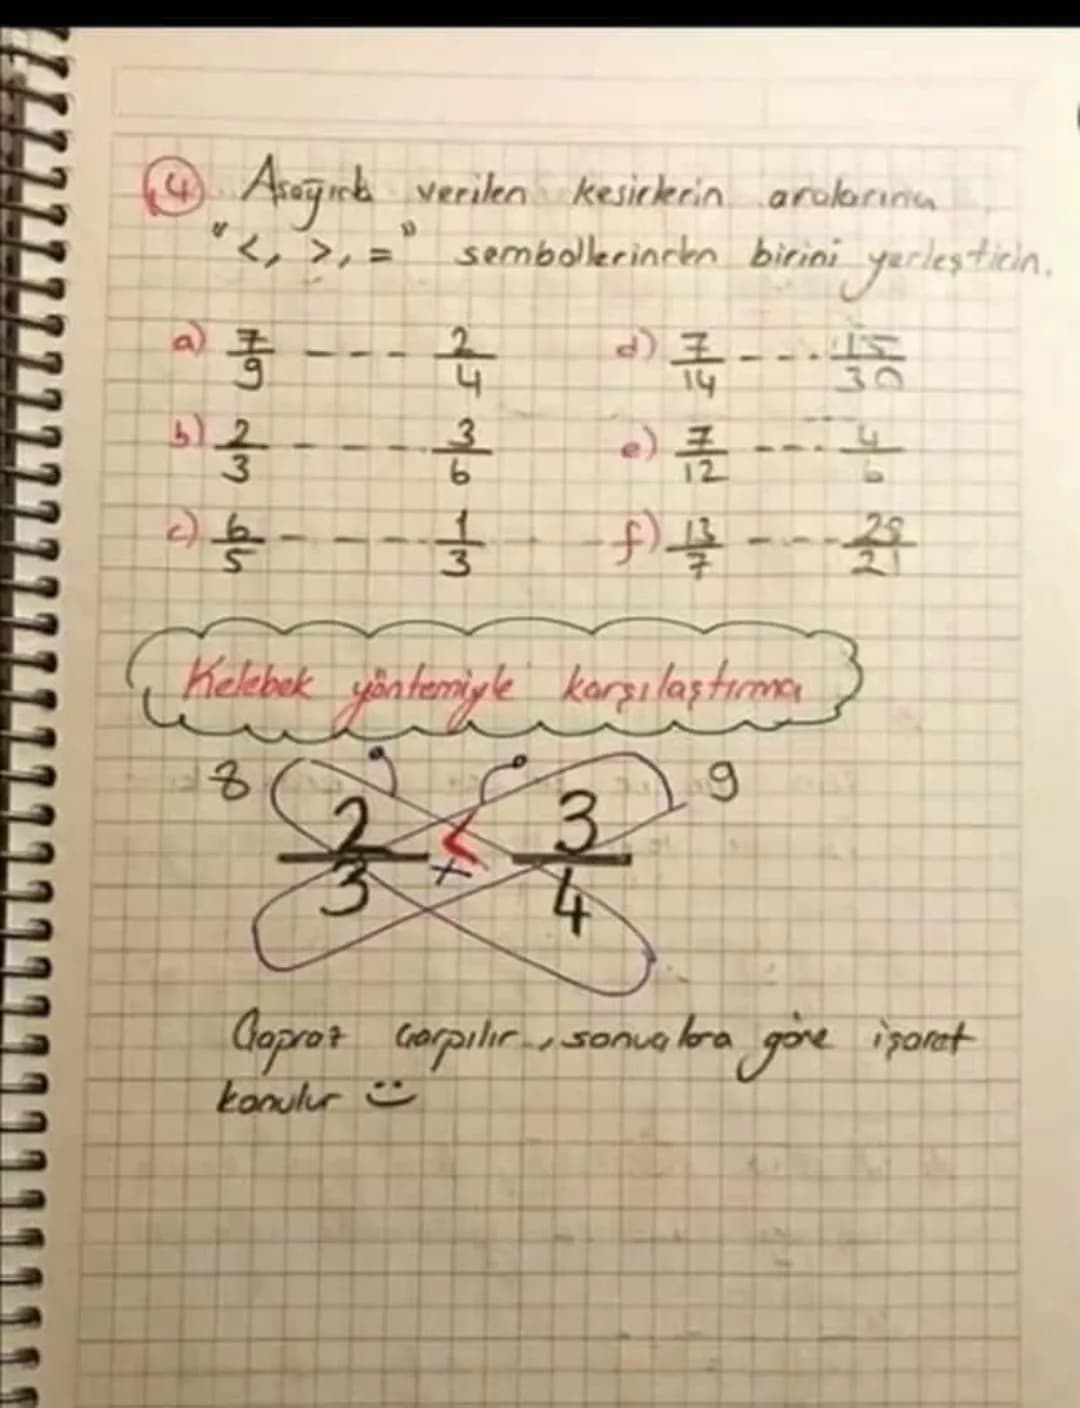 4) Aşağıda verilen kesirlerin aralarına
"<, >, =" sembollerinden birini yerleştirin.
a) 7/9 ---- 2/4
d) 7/14 ---- 15/30
b) 2/3 ---- 3/6
e) 7/12 ---- 4/6
c) 6/5 ---- 1/3
f) 13/7 ---- 28/21
Kelebek yöntemiyle karşılaştırma
8 2/3 < 3/4 9
x
Çapraz çarpılır, sonuçlara göre işaret
konulur